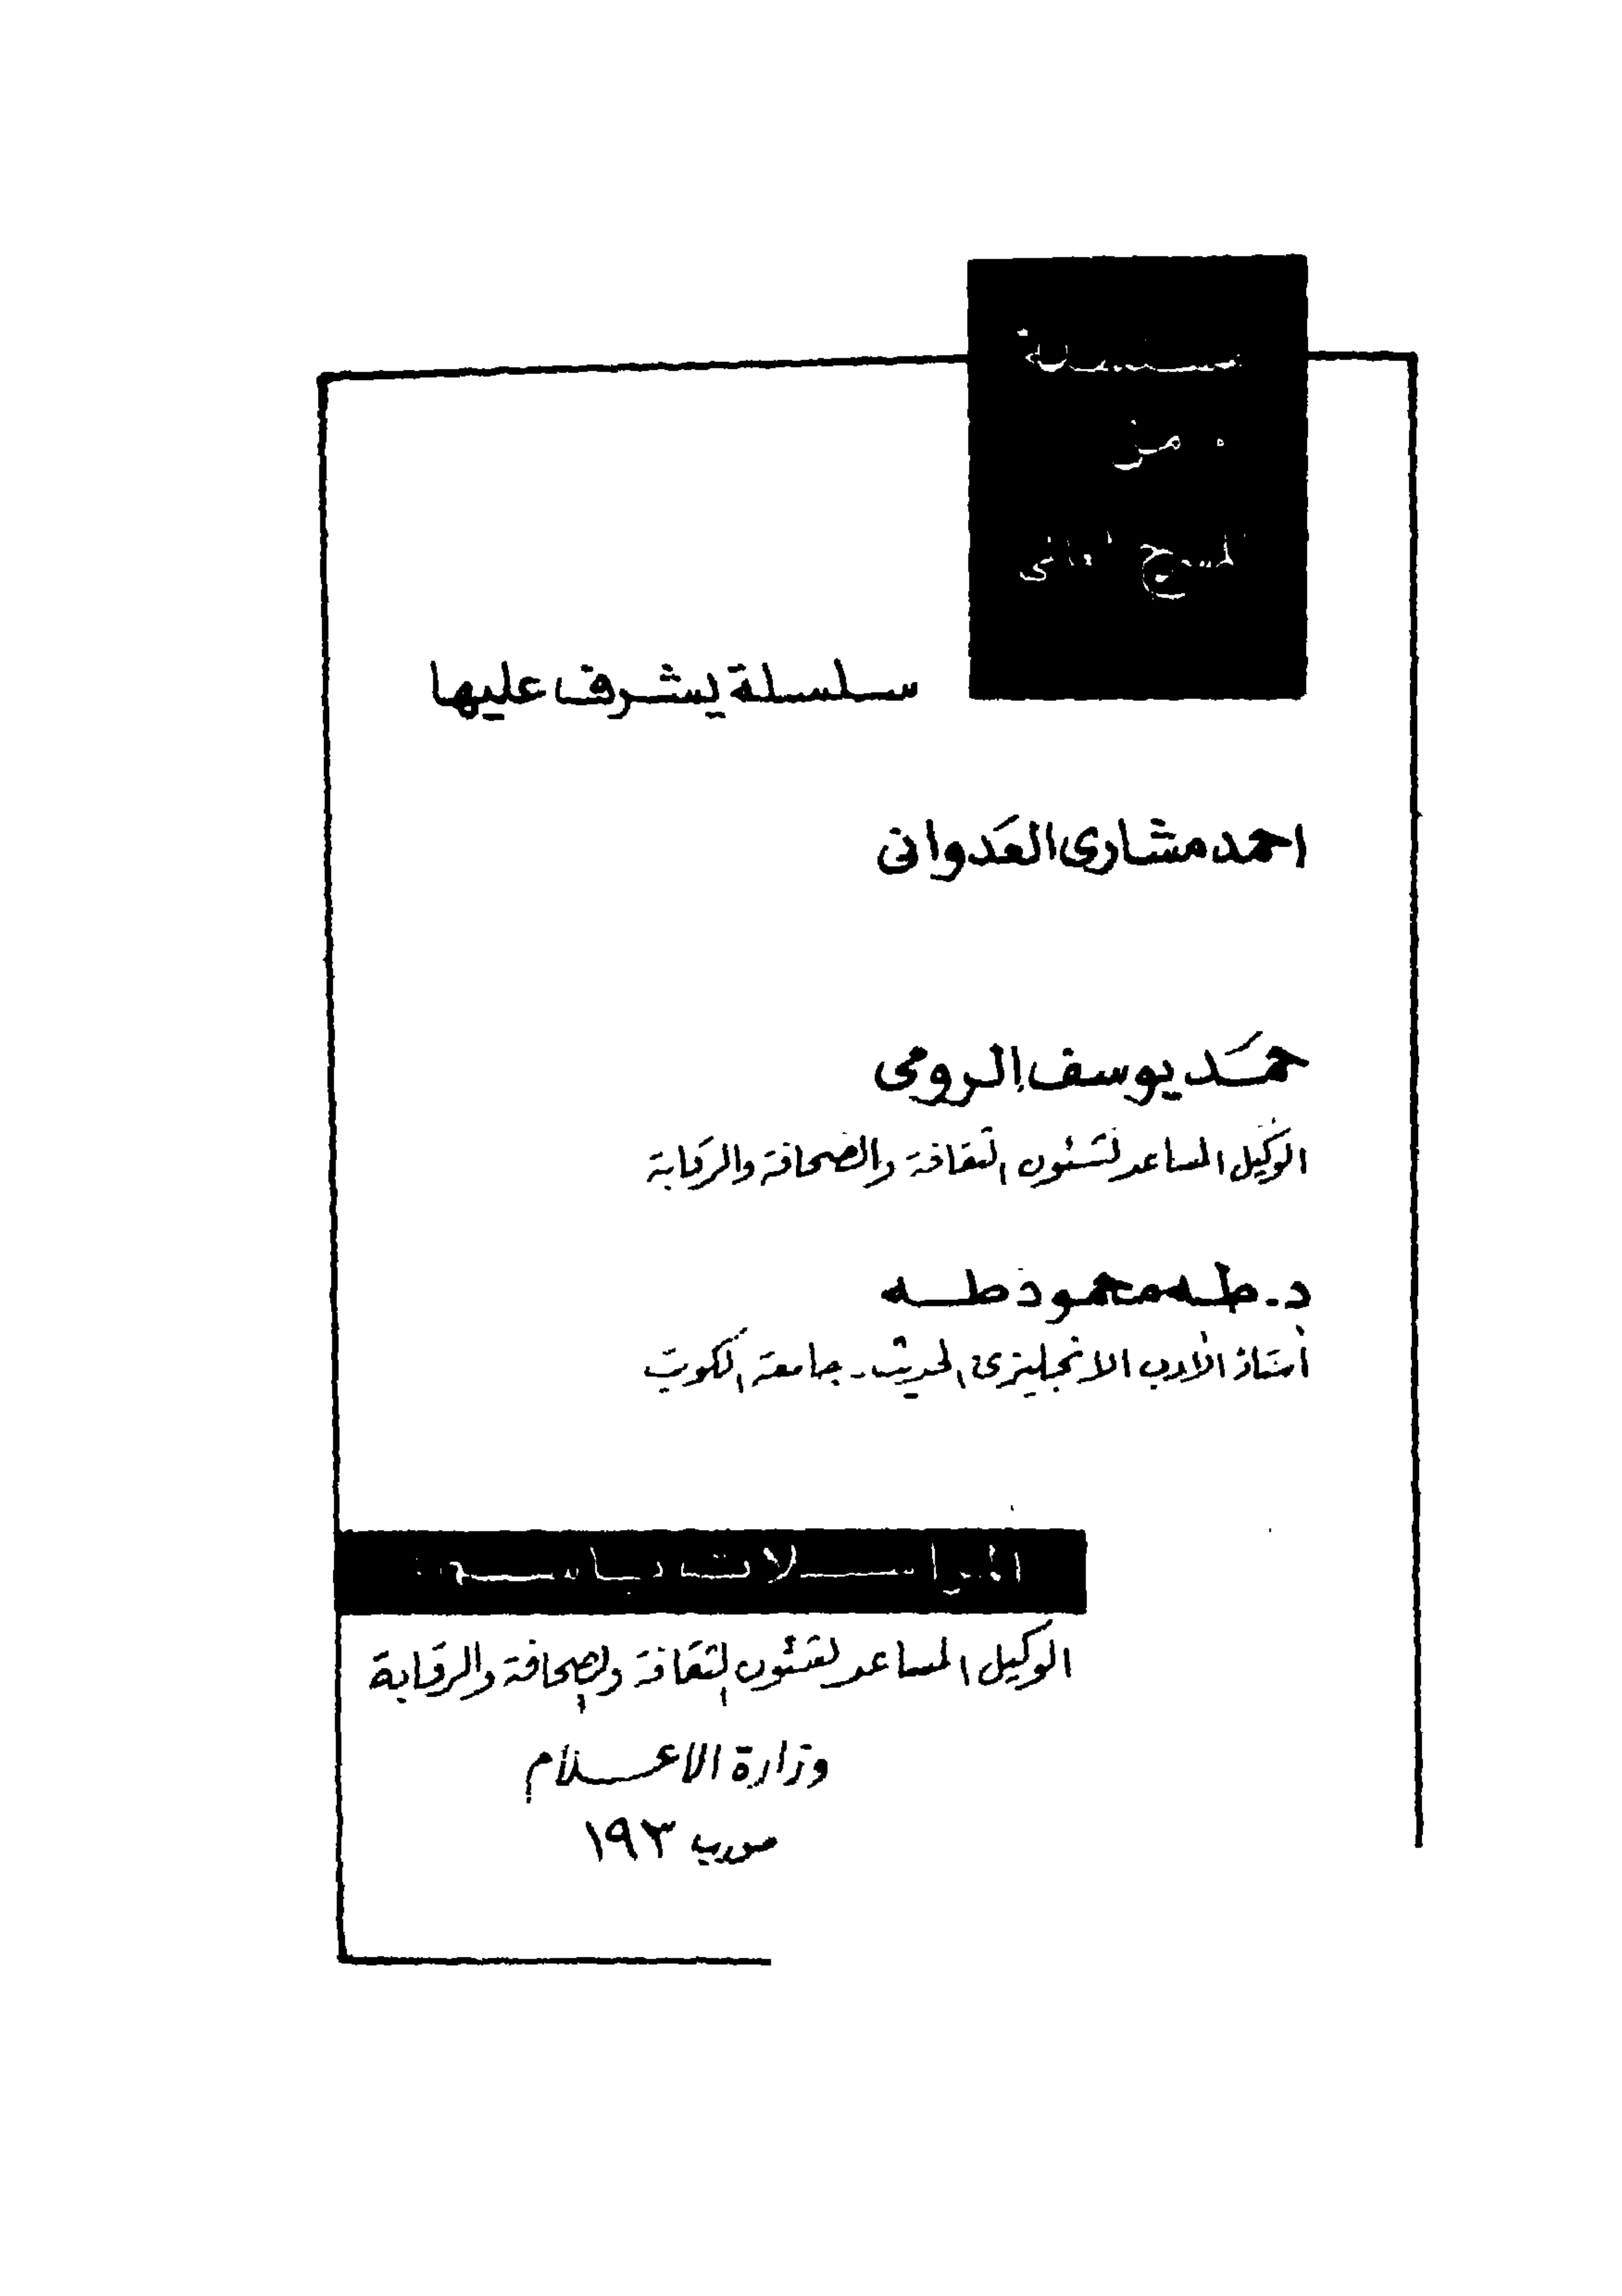 سلسلة
من
المسرح العالمى
سلسلة يشرف عليها
احمد مشارى العَدوانى
حمَد يوسف الرومى
الوكيل المساعد لشئون الثقافة والصحافة والرقابة
د. طه محمود طه
أستاذ الأدب الانجليزى الحديث - جامعة الكويت
المراسلات باسم
الوكيل المساعد لشئون الثقافة والصحافة والرقابة
وزارة الاعلام
ص.ب ١٩٣